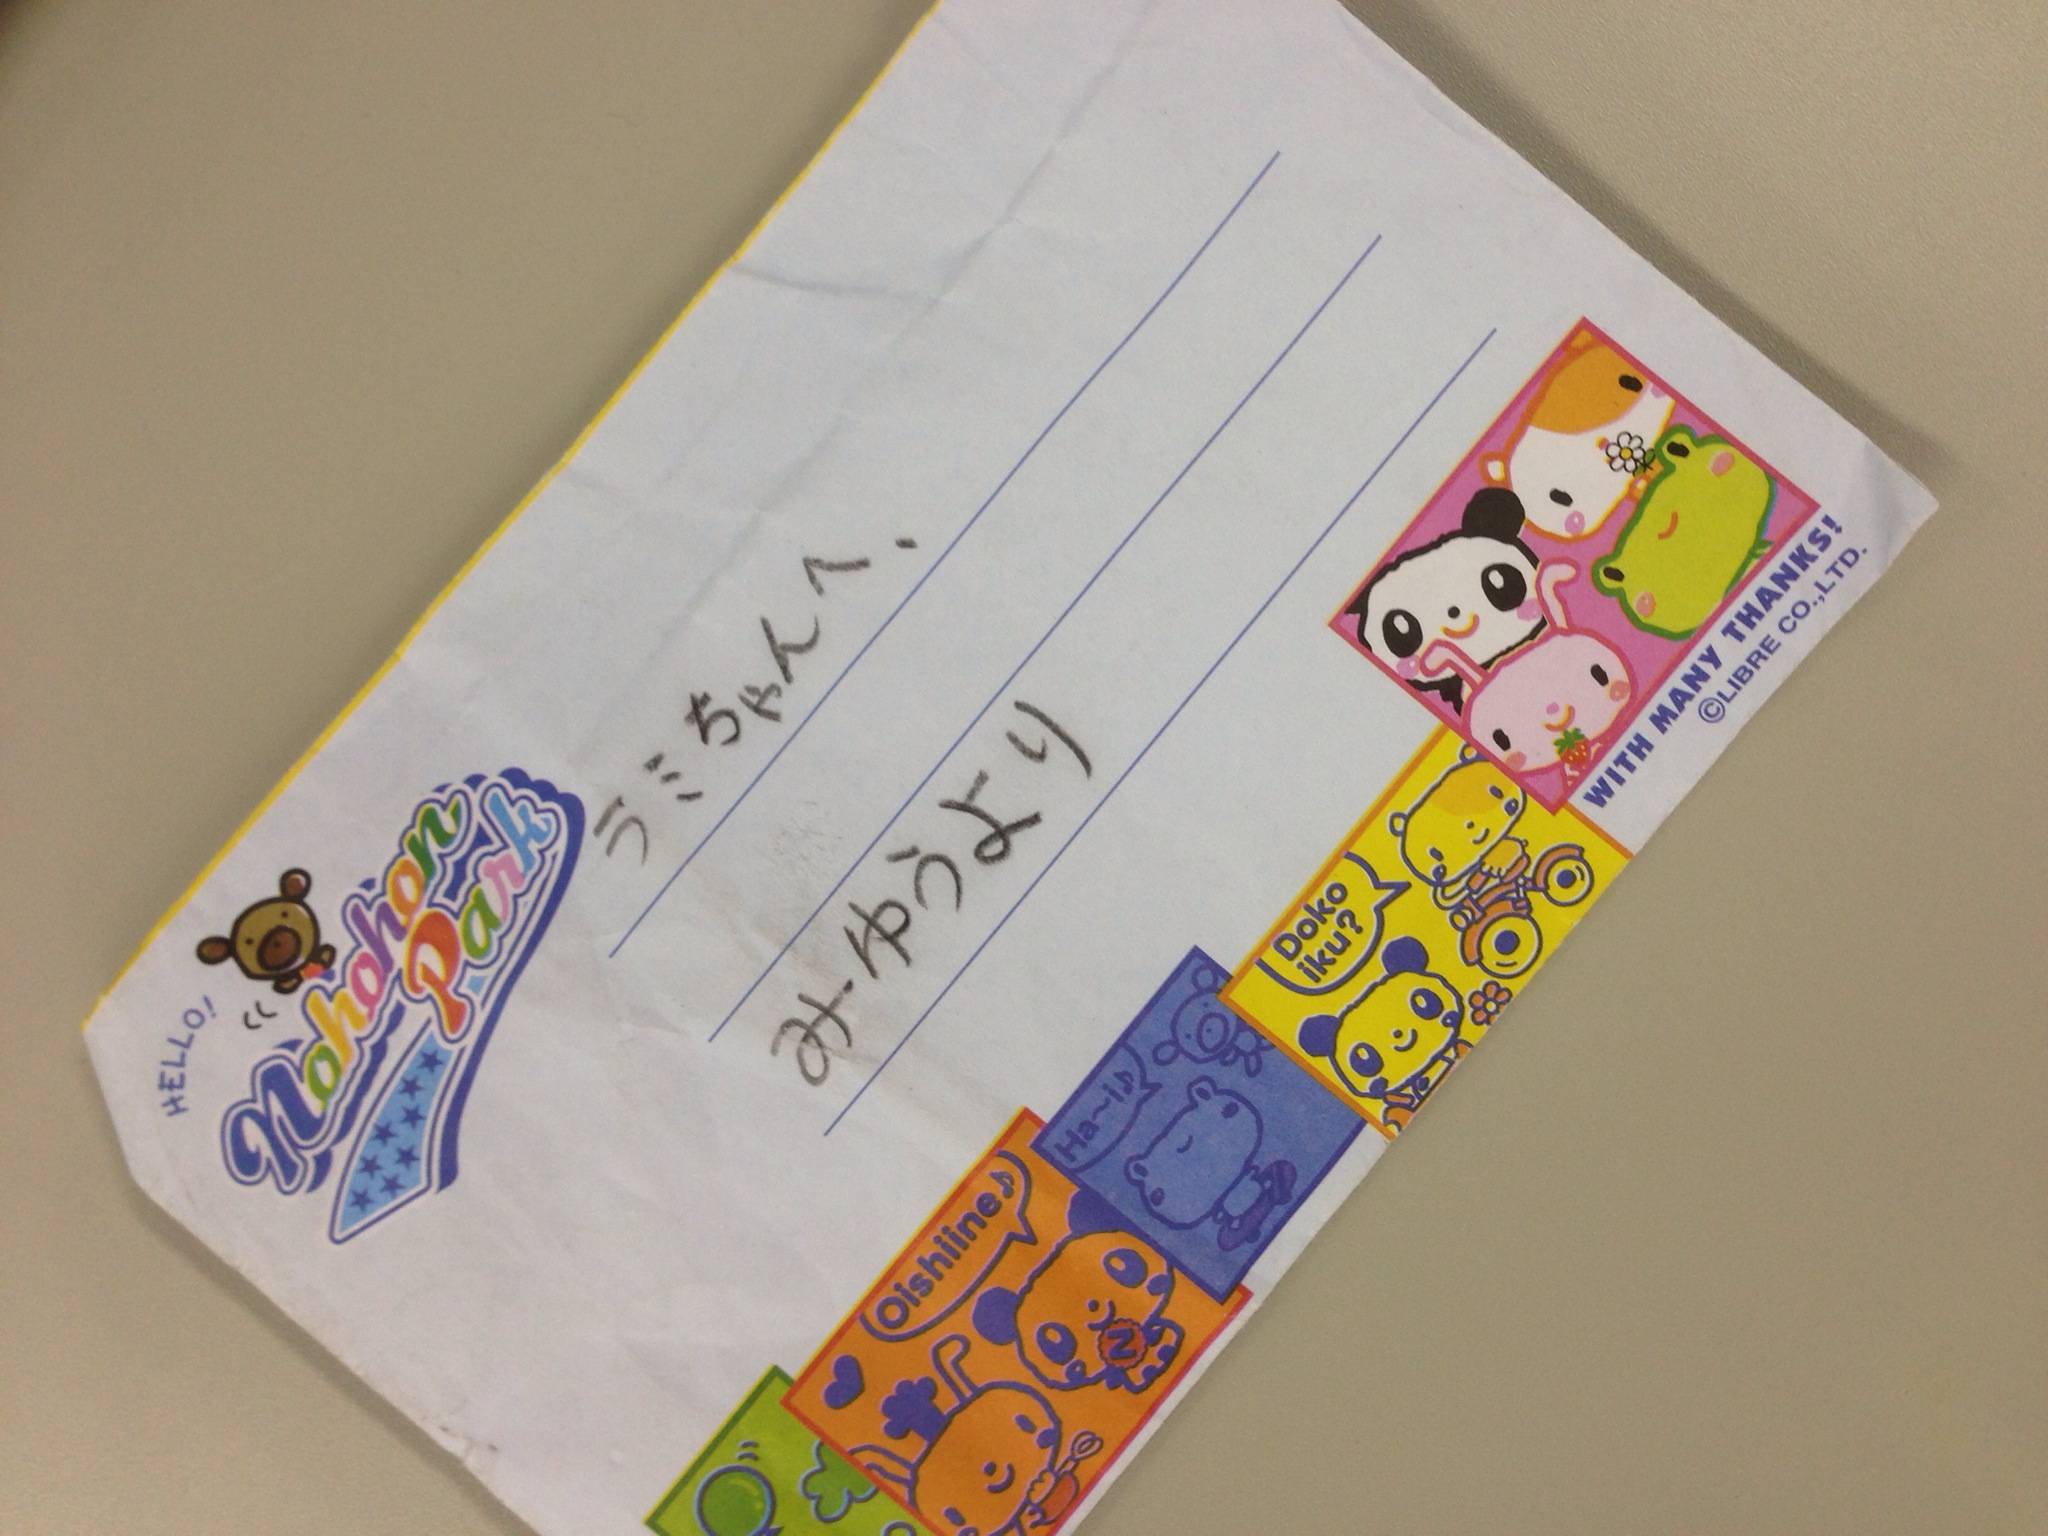 HELLO!
Nohohon
Park
ラミちゃんへ.
みゆうより
WITH MANY THANKS!
©LIBRE CO.,LTD.
Doko
iku?
Ha~i♪
Oishiiine♪
N